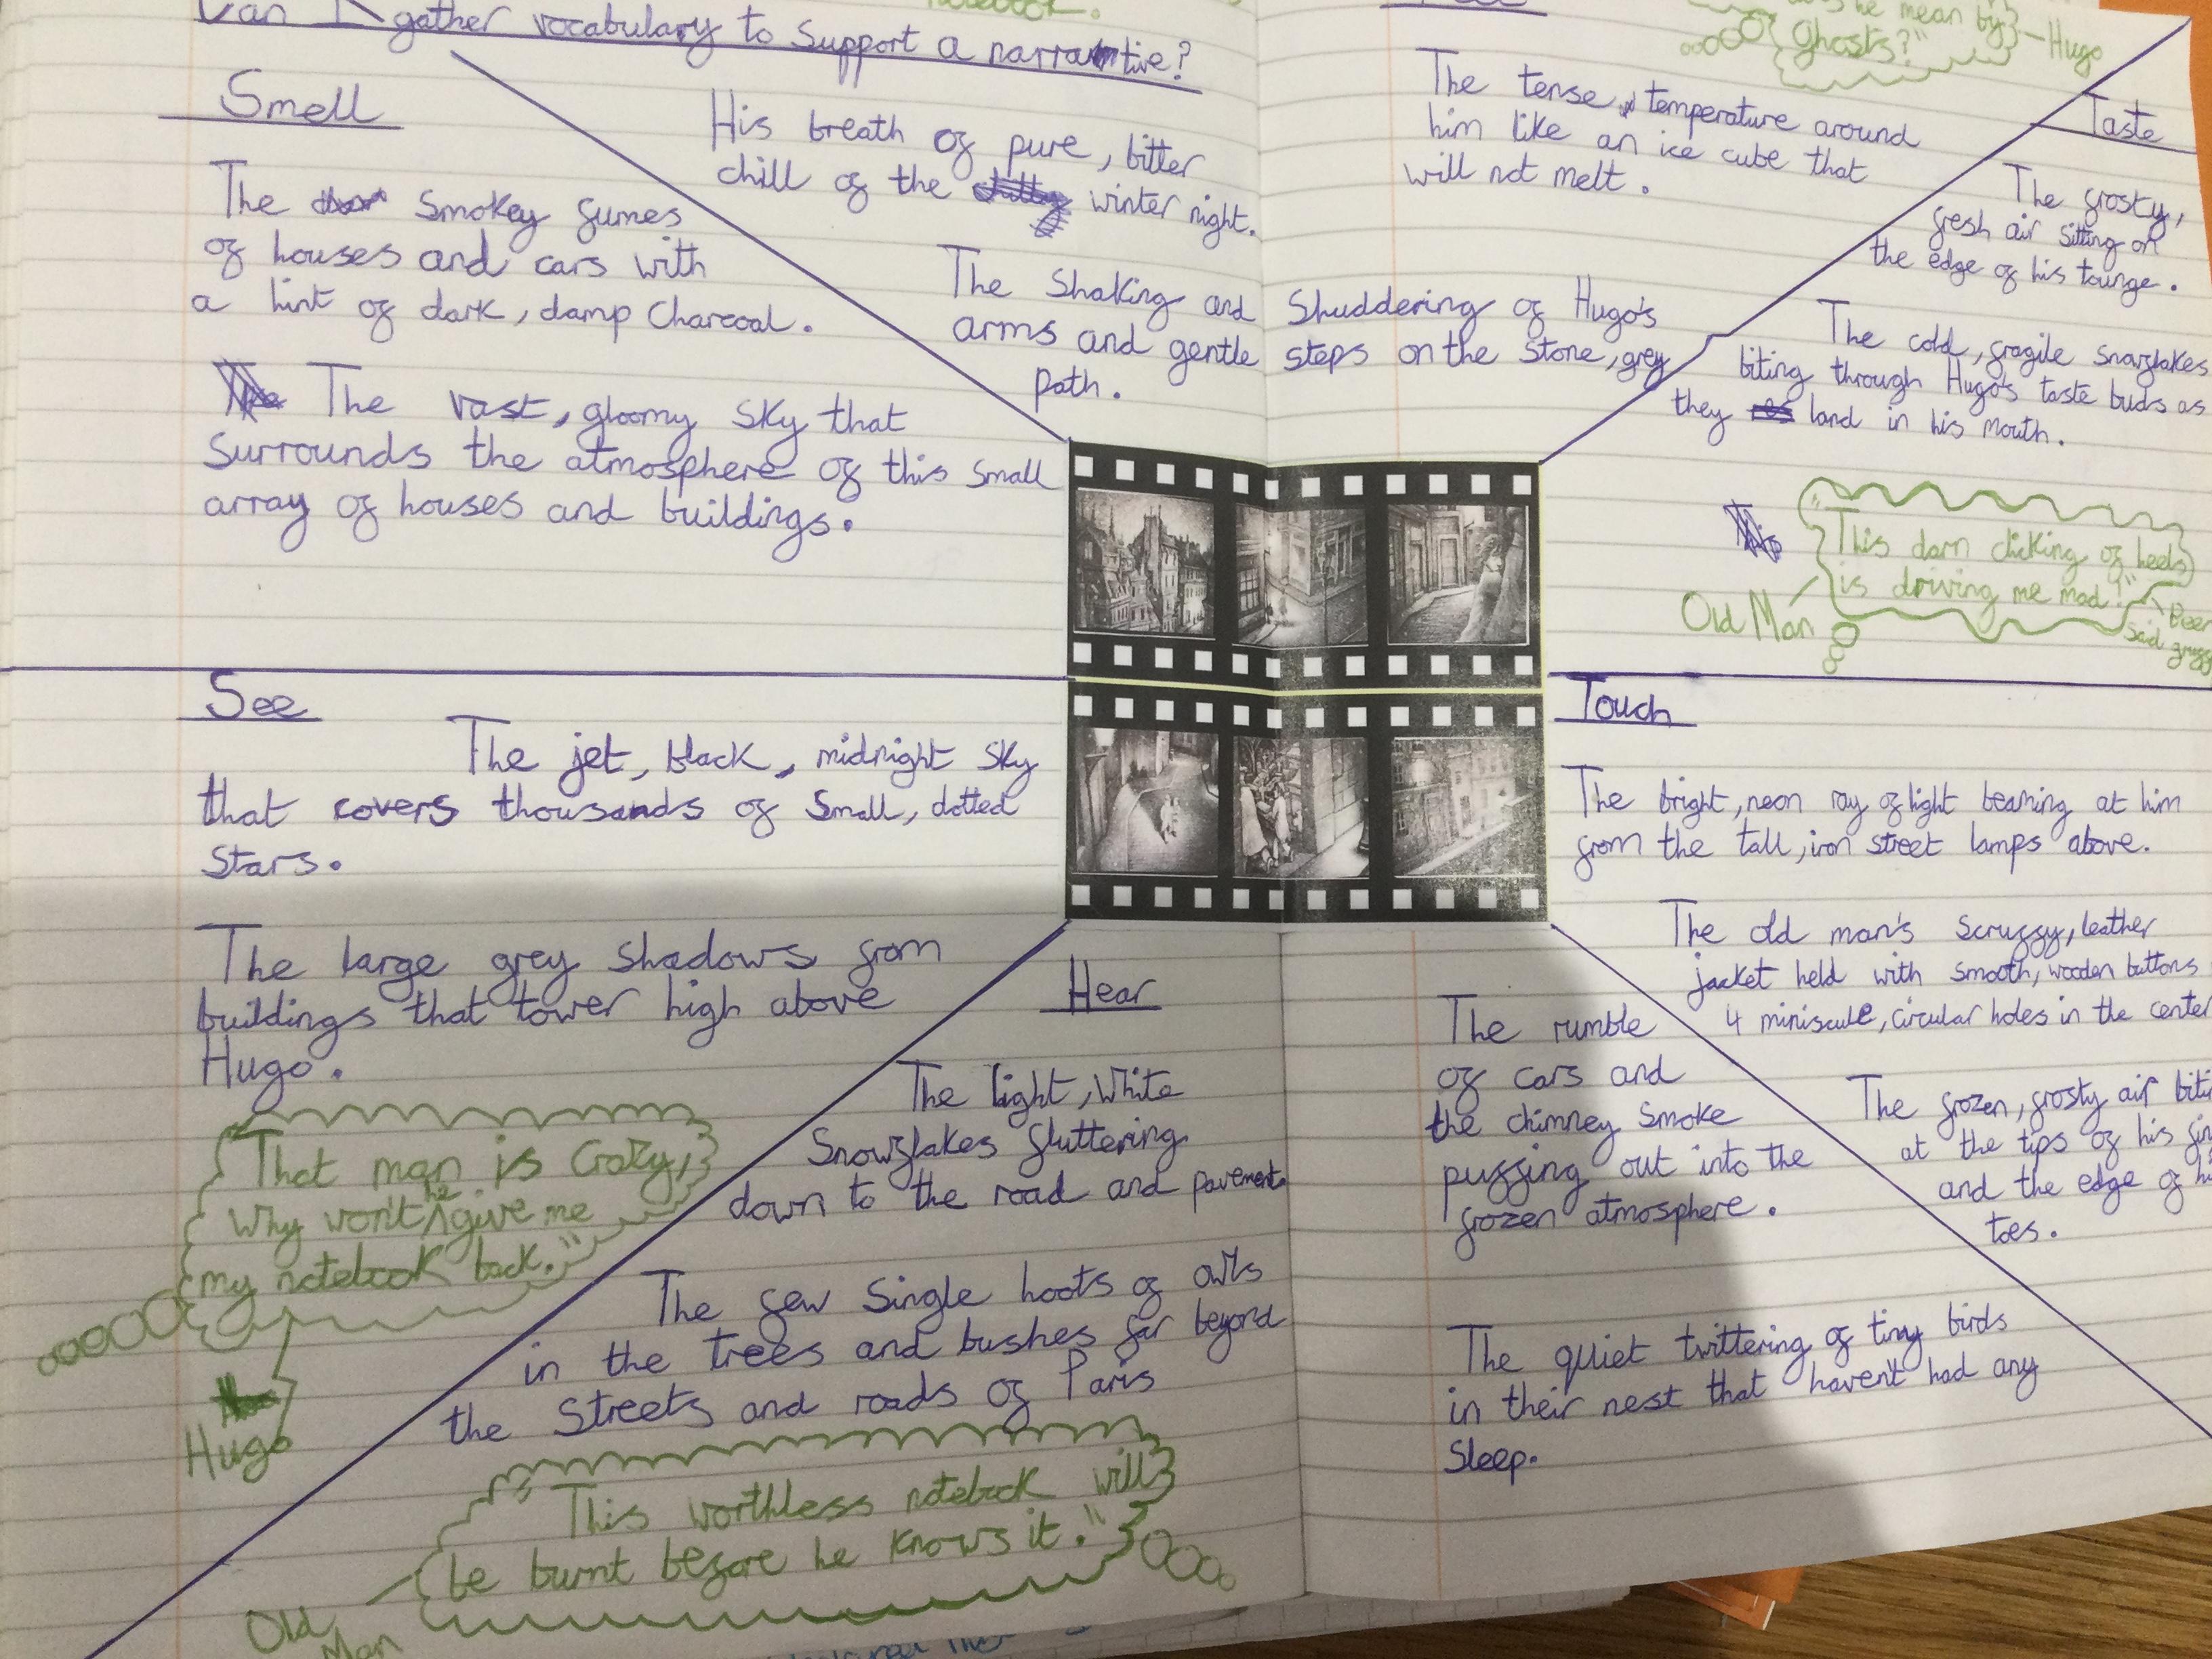 Can I gather vocabulary to support a narrative?
notebook.
Smell
The smokey fumes
of houses and cars with
a hint of dark, damp charcoal.
The vast, gloomy sky that
surrounds the atmosphere of this small
array of houses and buildings.
His breath of pure, bitter
chill of the winter night.
The shaking and shuddering of Hugo's
arms and gentle steps on the stone, grey
path.
he mean by
Ghosts?"
Hugo
The tense temperature around
him like an ice cube that
will not melt.
Taste
The frosty,
fresh air sitting on
the edge of his tounge.
The cold, fragile snowflakes
biting through Hugo's taste buds as
they land in his mouth.
"This darn clicking of heels
is driving me mad!"
Old Man
said
See
The jet, black, midnight sky
that covers thousands of small, dotted
stars.
The large grey shadows from
buildings that tower high above
Hugo.
"That man is crazy,
why won't he give me
my notebook back."
Hugo
Hear
The light, white
snowflakes fluttering
down to the road and pavement
The few single hoots of owls
in the trees and bushes far beyond
the streets and roads of Paris
"This worthless notebook will
be burnt before he knows it."
Old
Man
The rumble
of cars and
the chimney smoke
puffing out into the
frozen atmosphere.
The quiet twittering of tiny birds
in their nest that haven't had any
sleep.
Touch
The bright, neon ray of light beaming at him
from the tall, iron street lamps above.
The old man's scruffy, leather
jacket held with smooth, wooden buttons
4 miniscule, circular holes in the center
The frozen, frosty air
at the tips of his
and the edge of
toes.